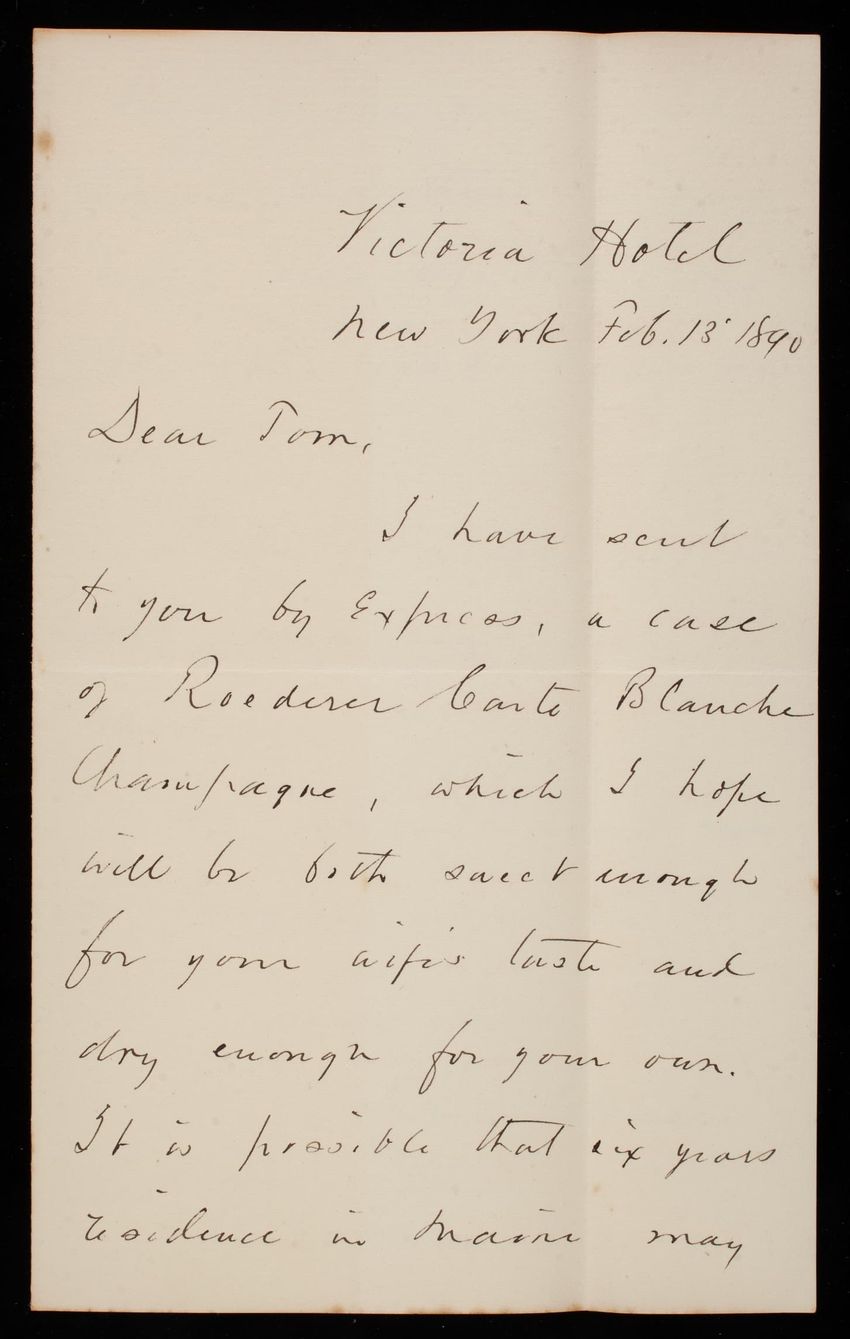 Victoria Hotel
New York Feb. 13 1890
Dear Tom,
I have sent
to you by Express, a case
of Roederer Carte Blanche
Champagne, which I hope
will be both sweet enough
for your wife's taste and
dry enough for your own.
It is possible that six years
residence in Maine may